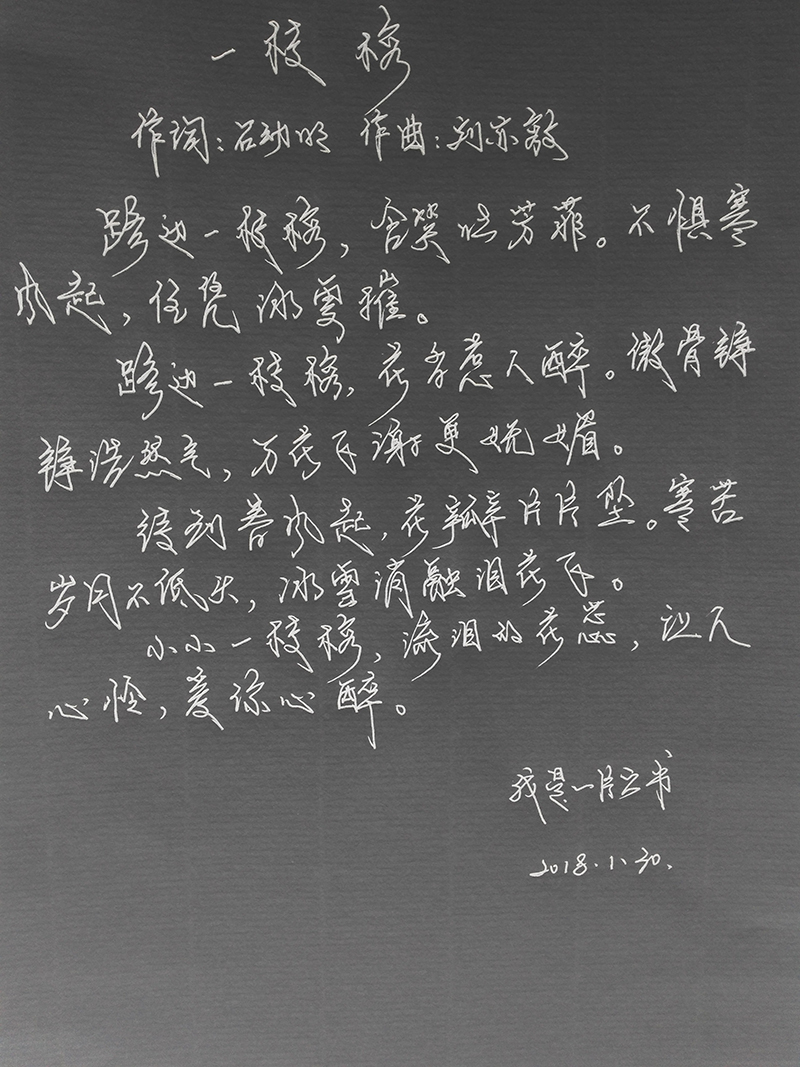 一枝梅
作词：石动明 作曲：刘亦敏
路边一枝梅，含笑吐芳菲。不惧寒
风起，任凭冰雪摧。
路边一枝梅，花香惹人醉。傲骨铮
铮浩然气，万花开谢更妩媚。
待到春风起，花瓣片片坠。寒苦
岁月不低头，冰雪消融泪花飞。
小小一枝梅，流泪的花蕊，让人
心怜，爱你心醉。
我是一片云书
2018.1.30.